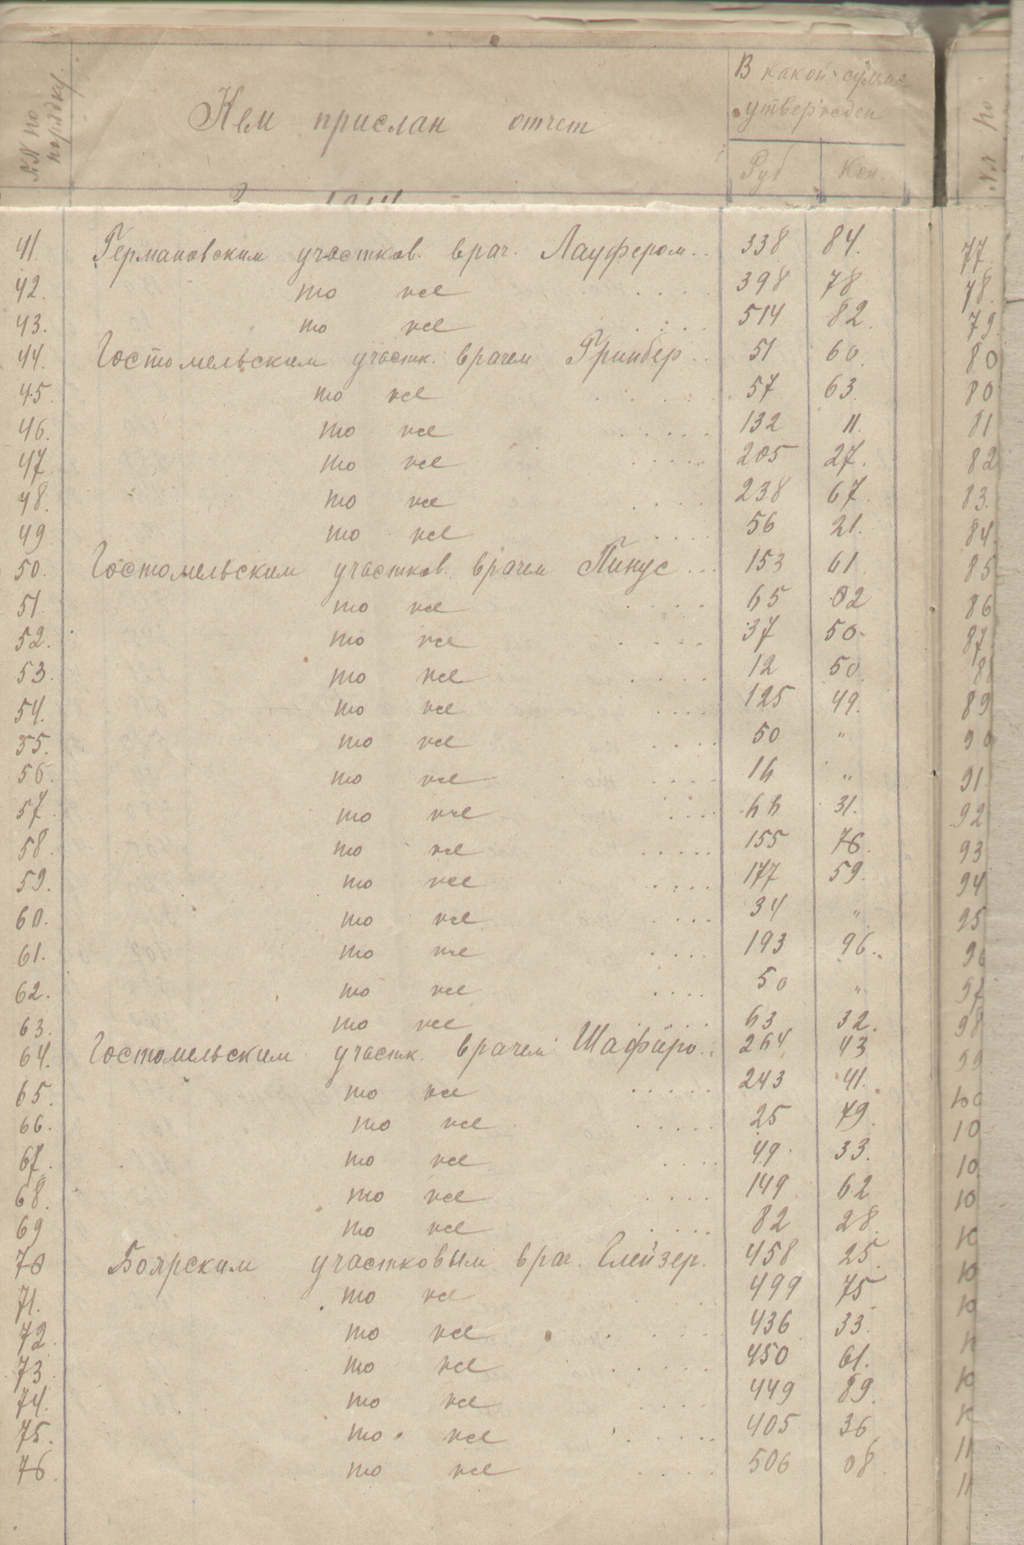 №№ по порядку
Кем прислан отчет
В какой сумме утвержден
Руб. Коп.
№№ по
41. Германовским участков. врач. Лауфером.. 338 84.
42. то же .... 398 78
43. то же .... 514 82.
44. Гостомельским участк. врачем Гринбер.. 51 60.
45. то же .... 57 63.
46. то же ..... 132 11.
47. то же ..... 205 27.
48. то же .... 238 67.
49 то же .... 56 21.
50. Гостомельским участков. врачем Пинус ... 153 61.
51. то же .... 65 02
52. то же .... 37 50.
53. то же .... 12 50.
54. то же .... 125 49.
55. то же .... 50 "
56. то же .... 16 "
57. то же .... 66 31.
58. то же ..... 155 76.
59. то же .... 177 59.
60. то же .... 34 "
61. то же .... 193 96.
62. то же .... 50 "
63. то же .... 63 32.
64. Гостомельским участк. врачем Шафиро.. 264 43
65. то же ..... 243 41.
66. то же ..... 25 79.
67. то же .... 49 33.
68. то же .... 149 62
69 то же .... 82 28.
70 Боярским участковым врач. Глейзер. 458 25.
71. то же ... 499 75
72. то же .... 436 33.
73 то же ..... 450 61.
74. то же .... 449 89.
75. то же ..... 405 36
76. то же .... 506 08.
77.
78.
79
80
80
81
82
83.
84.
85
86
87
8
89
90
91
92
93
94
95
96
97
98
99
100
10
10
10
10
10
10
11
11